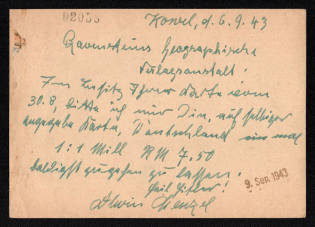 02055
Kowel, d. 6.9.43
Ravensteins Geographische
Verlagsanstalt!
Im Besitz Ihrer Karte vom
30.8, bitte ich mir die, auf selbiger
angegebe Karte, Deutschland ein mal
1:1 Mill RM 7.50
baldigst zugehen zu lassen.
Heil Hitler!
9. Sep. 1943
Alwin Menzel